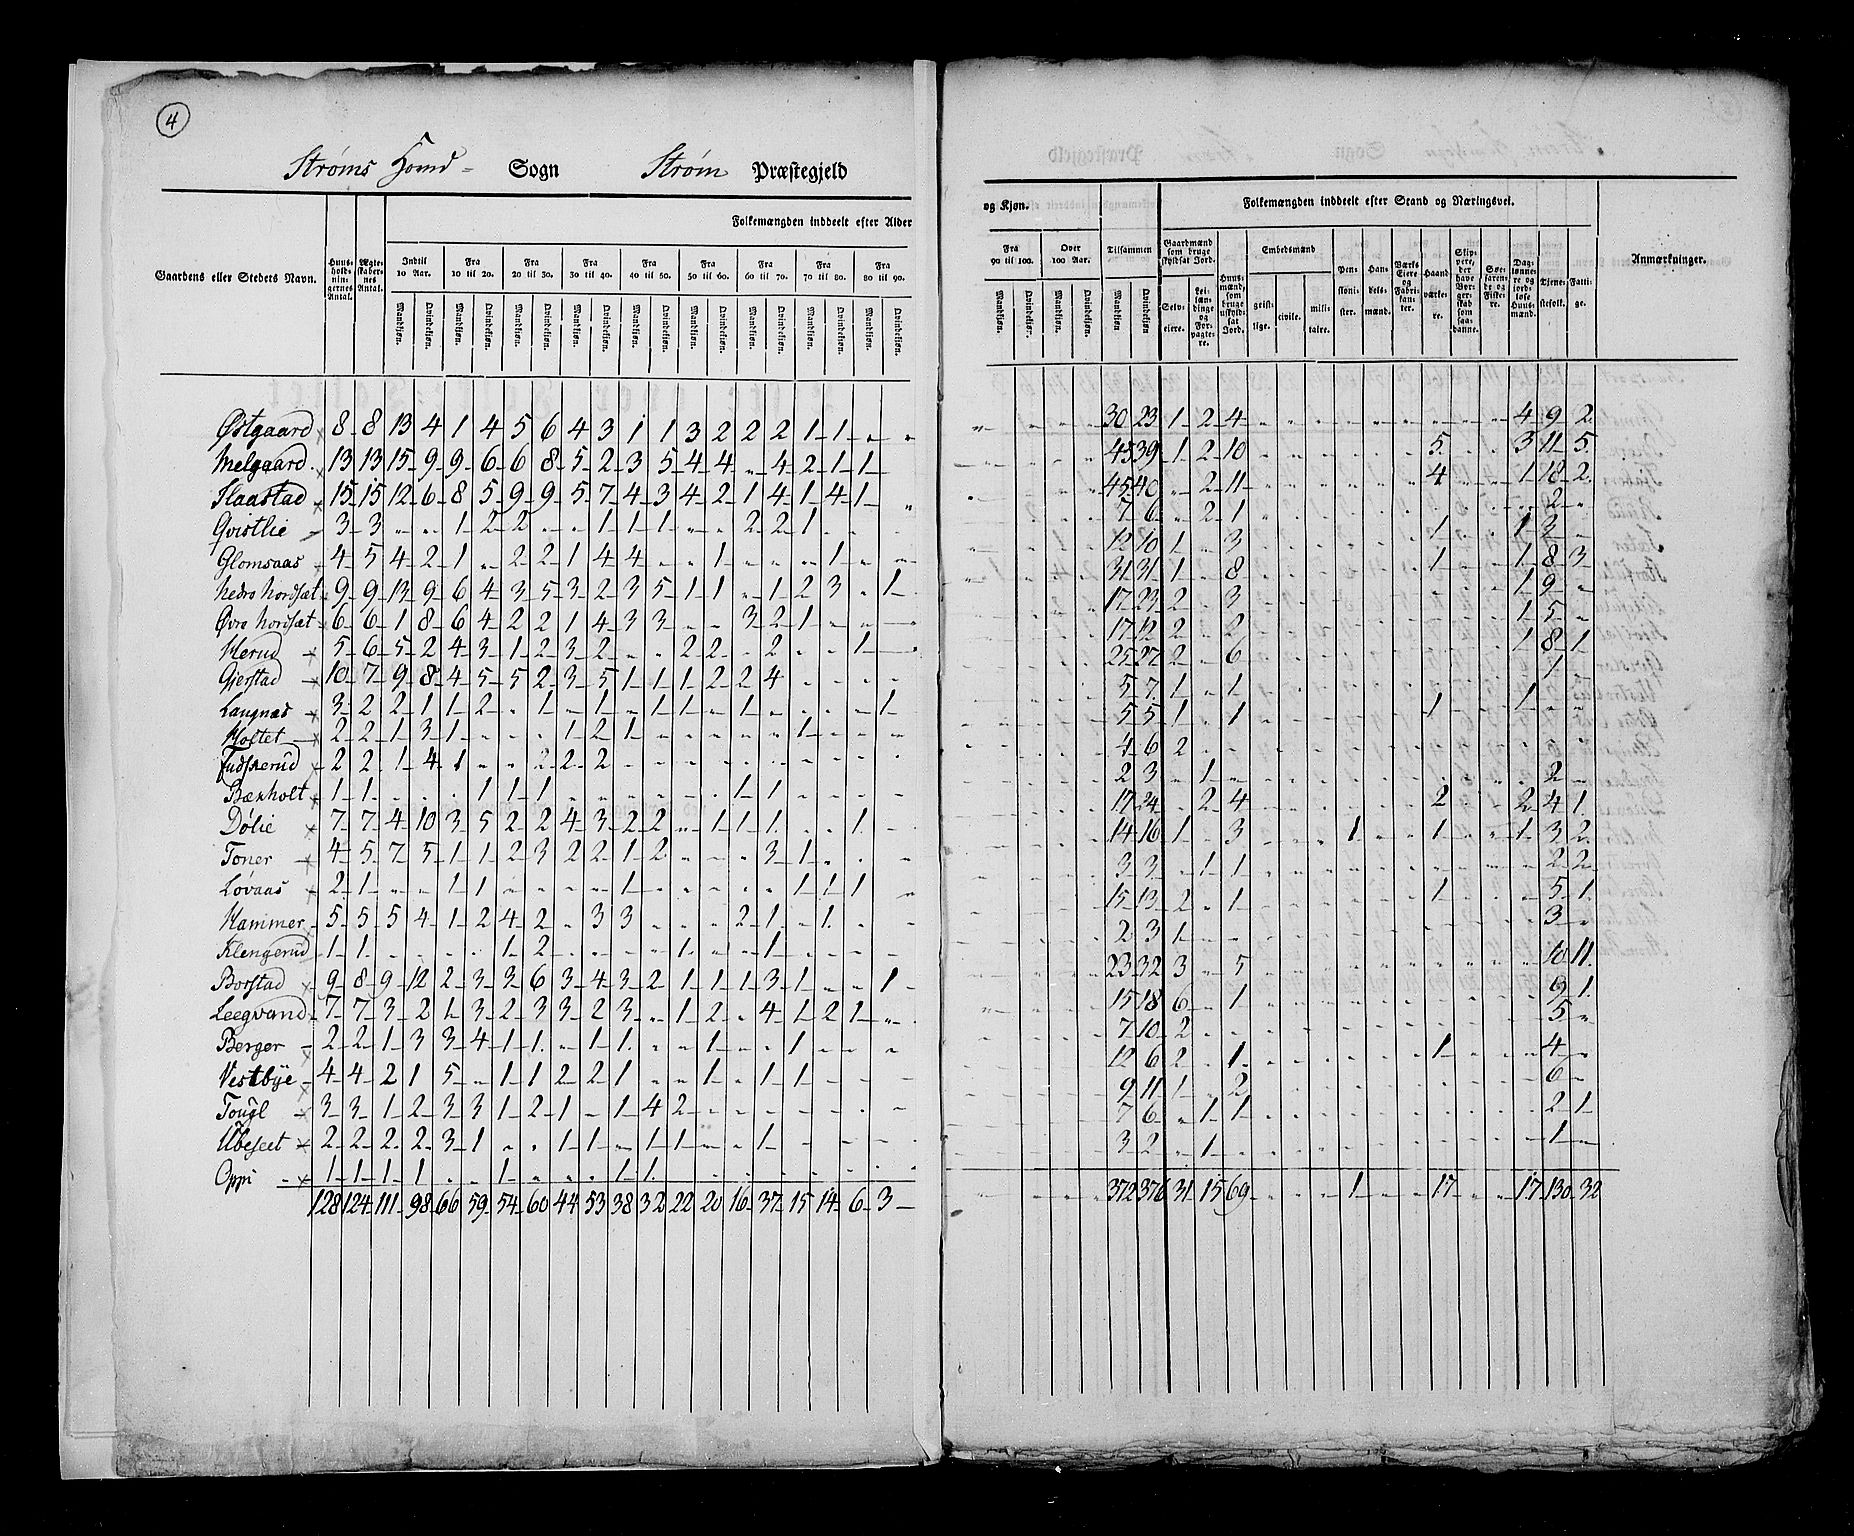 4
Strøms Hovd- Sogn Strøm Præstegjeld
Gaardens eller Steders Navn.
Huus-holdnin-gernes Antal.
Ægte-skaber-nes Antal.
Folkemængden inddeelt efter Alder
Indtil 10 Aar. Fra 10 til 20. Fra 20 til 30. Fra 30 til 40. Fra 40 til 50. Fra 50 til 60. Fra 60 til 70. Fra 70 til 80. Fra 80 til 90.
Mandkiøn. Qvindekiøn. Mandkiøn. Qvindekiøn. Mandkiøn. Qvindekiøn. Mandkiøn. Qvindekiøn. Mandkiøn. Qvindekiøn. Mandkiøn. Qvindekiøn. Mandkiøn. Qvindekiøn. Mandkiøn. Qvindekiøn. Mandkiøn. Qvindekiøn.
Østgaard 8 8 13 4 1 4 5 6 4 3 1 1 3 2 2 2 1 1 " "
Melgaard 13 13 15 9 9 6 6 8 5 2 3 5 4 4 " 4 2 1 1
Flaastad 15 15 12 6 8 5 9 9 5 7 4 3 4 2 1 4 1 4 1 "
Qvistlie 3 3 " " 1 2 2 " " 1 1 1 " " 2 2 1
Glomsaas 4 5 4 2 1 " 2 2 1 4 4 " " 1 " " " 1 " "
Nedro Nordsæt 9 9 13 9 6 4 3 5 3 2 3 5 1 1 " 1 2 3 " 1
Øvro Nordsæt 6 6 1 8 6 4 2 2 1 4 3 3 " " 3 2 1
Herud 5 6 5 2 4 3 1 2 3 2 " " 2 2 " 2 " " 1
Gjerstad 10 7 9 8 4 5 5 2 3 5 1 1 1 2 2 4
Langnæs 3 2 2 1 1 2 " 1 " 1 " 1 1 " 1 " " " " 1
Holtet 2 2 1 3 1 " " " 1 2 1 " " " " " 1
Fudskerud 2 2 1 4 1 " " 2 2 2
Bæxholt 1 1 " " " 1 1 1 " " " " " " 1 1
Dølie 7 7 4 10 3 5 2 2 4 3 2 2 " 1 1 1 " " 1 "
Toner 4 5 7 5 1 1 2 3 2 2 1 2 " " " 3 1
Løvaas 2 1 " " 1 1 " " " " 1 " " " " " 1 1 1 "
Hammer 5 5 5 4 1 2 4 2 " 3 3 " " " 2 1 " 1
Klengerud 1 1 " " " " 1 2 " " " " 1 " " 1
Borstad 9 8 9 12 2 3 3 6 3 4 3 2 1 1 1 3 1 " " 1
Leegvand 7 7 3 2 1 3 2 3 3 2 3 " 1 2 " 4 1 2 1 "
Berger 2 2 1 3 3 4 1 1 " 1 1 " " 1 " " 1
Vestbye 4 4 2 1 5 " 1 1 2 2 1 " " 1 " 1 1
Tougl 3 3 1 2 3 3 1 2 1 " 1 4 2
Ubeseet 2 2 2 2 3 1 " " 1 1 " 1 1 " " 1
Oppi 1 1 1 1 " " 1 " " " 1 1
128 124 111 98 66 59 54 60 44 53 38 32 22 20 16 37 15 14 6 3
og Kjøn.
Fra 90 til 100. Over 100 Aar. Tilsammen
Mandkiøn. Qvindekiøn. Mandkiøn. Qvindekiøn. Mandkiøn Qvindekiøn.
Folkemængden inddeelt efter Stand og Næringsvei.
Gaardmænd som bruge skyldsat Jord.
Selv-eiere.
Lei-læn-dinge og For-pagte-re.
Huus-mænd, som bruge uskyld-sat Jord.
Embedsmænd
geist-lige. civile. mili-taire.
Pen-sioni-ster.
Han-dels-mænd.
Værks Eiere og Fabri-kan-ter.
Haand værke-re.
Skip-pere, der have Bor-ger-skab som saa-danne.
Søe-faren-de og Fiske-re.
Dag-lønne-re og jord-løse Huus-mænd.
Tjene-stefolk.
Fatti-ge.
Anmærkninger.
30 23 1 2 4 4 9 2
45 39 1 2 10 5 3 11 5
45 40 " 2 11 4 1 18 2
7 6 " 2 1 2 "
12 10 1 " 3 1 1 3
31 31 1 " 8 1 1 8 3
17 23 2 " 3 1 9 "
17 12 2 " 2 1 5 "
25 27 2 " 6 1 8 1
5 7 1 " 1 1
5 5 1 " 1 1 1 " "
4 6 2
2 3 " 1 2 "
17 24 " 2 4 2 2 4 1
14 16 1 " 3 1 1 1 3 2
3 3 " 1 1 2 2
15 13 2 " 1 1 5 1
2 3 1 3 "
23 32 3 " 5 10 11
15 18 6 " 1 9 1
7 10 2 5 "
12 6 2 " 1 1 4 "
9 11 1 " 2 6 "
7 6 " 1 1 2 1
3 2 " 1 1 "
372 376 31 15 69 1 17 17 130 32